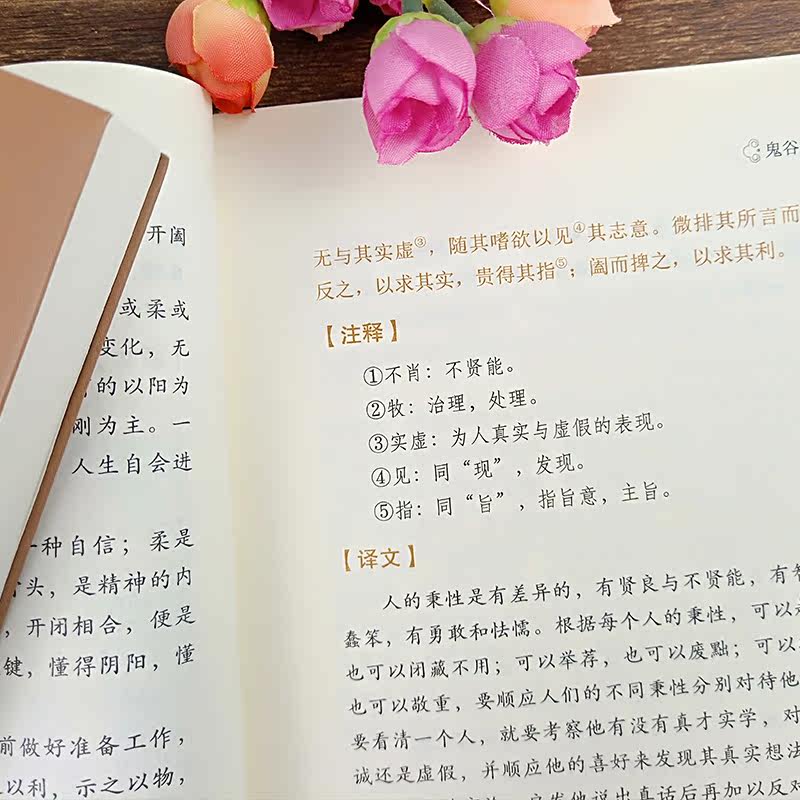 开阖
或柔或
变化，无
的以阳为
刚为主。一
人生自会进
一种自信；柔是
头，是精神的内
，开闭相合，便是
键，懂得阴阳，懂
前做好准备工作，
以利，示之以物，
鬼谷
无与其实虚③，随其嗜欲以见④其志意。微排其所言而
反之，以求其实，贵得其指⑤；阖而捭之，以求其利。
【注释】
①不肖：不贤能。
②牧：治理，处理。
③实虚：为人真实与虚假的表现。
④见：同“现”，发现。
⑤指：同“旨”，指旨意，主旨。
【译文】
人的秉性是有差异的，有贤良与不贤能，有智
蠢笨，有勇敢和怯懦。根据每个人的秉性，可以
也可以闭藏不用；可以举荐，也可以废黜；可以
也可以敬重，要顺应人们的不同秉性分别对待他
要看清一个人，就要考察他有没有真才实学，对
诚还是虚假，并顺应他的喜好来发现其真实想法
发他说出真话后再加以反对